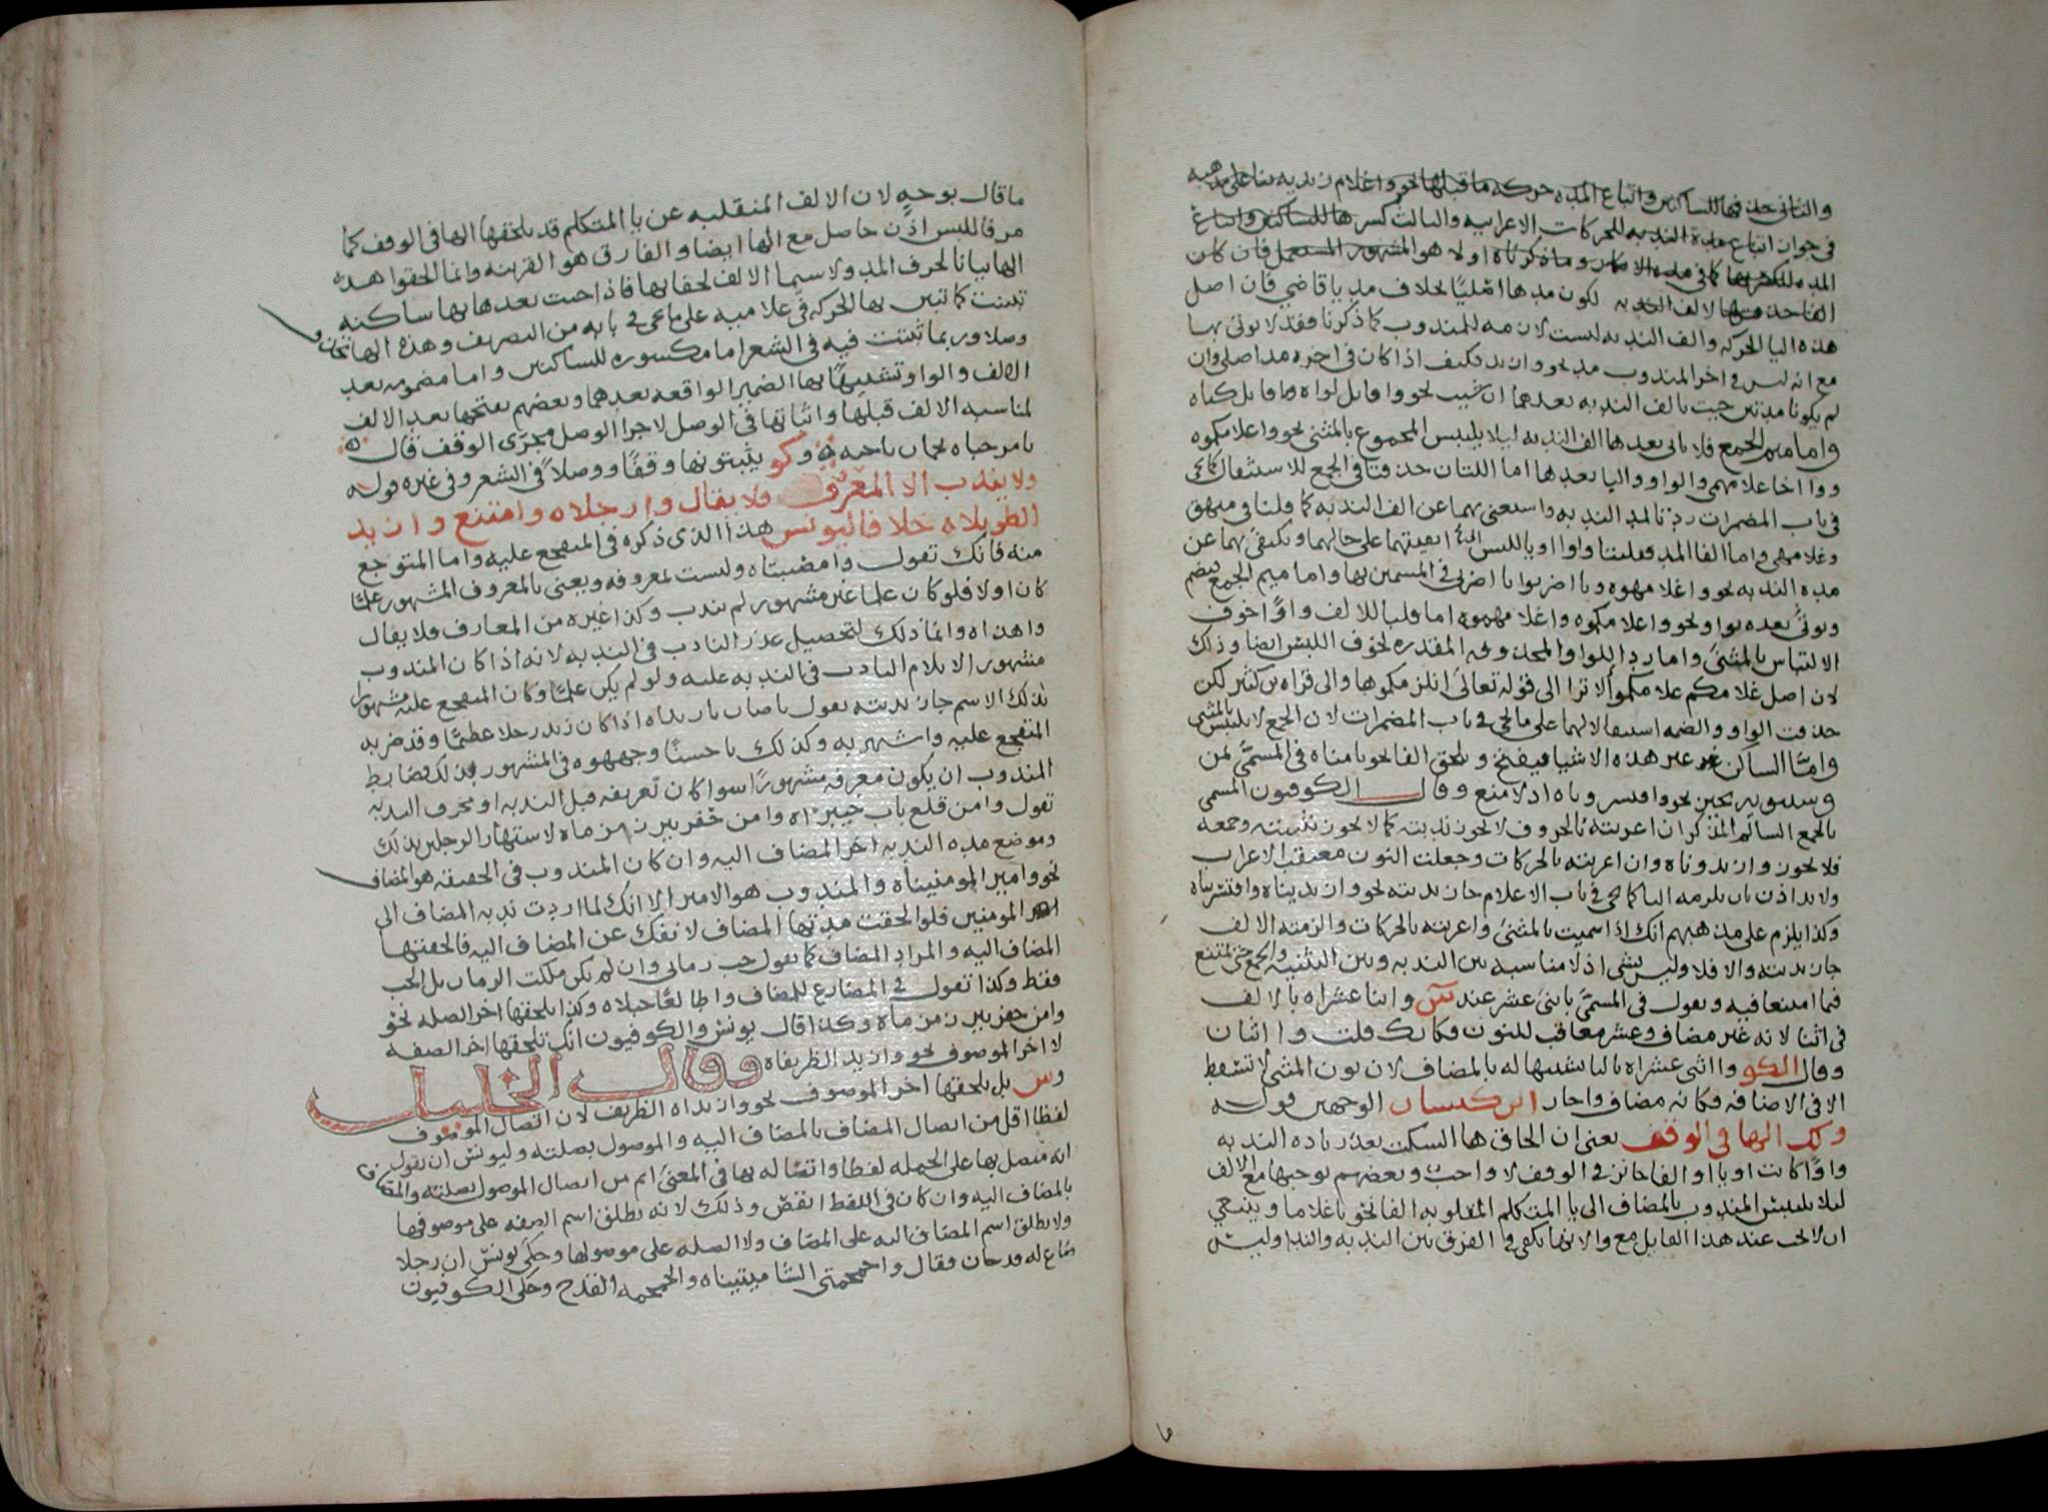 والثاني حذفها للساكنين واتباع المده حركه ما قبلها نحو واغلام زيديه بنا على مذهبه
في جواز اتباع مدة الندبه للحركات الاعرابيه والثالث كسرها للساكنين واتباع
المده للكسر وما ذكرناه اولا هو المشهور المستعمل فان كان
الفا حذفتها لالف الندبه لكون مدها اصليا بخلاف مد يا قاضي فان اصل
هذه اليا الحركه والف الندبه ليست لازمه للمندوب كما ذكرنا فقد لا يوتى بها
مع انه ليس في اخر المندوب مد نحو وا زيد فكيف اذا كان في اخره مد اصلى وان
لم يكونا مدتين جيت بالف الندبه بعدهما ان شيت نحو
واما ميم الجمع فلا ياتى بعدها الف الندبه ليلا يلتبس المجموع بالمثنى نحو واغلامكموه
ووا اخا غلامهمى والواو واليا بعدها اما اللتان حذفتا في الجمع للاستثقال كما يجي
في باب المضمرات ردتا لمد الندبه واستغنى بهما عن الف الندبه كما قلنا في
وغلامهى واما الفا المد فقلبتا واوا او يا للبس او ابقيتهما على حالهما ويكتفى بهما عن
مده الندبه نحو واغلامهوه ويا اضربوا يا اضربى في المسمين بها واما ميم الجمع فيضم
ويوتى بعده بواو نحو واغلامكموه واغلامهموه اما قلبا للالف واوا خوف
الالتباس بالمثنى واما ردا للواو المحذوفه المقدره لخوف اللبس ايضا وذلك
لان اصل غلامكم غلامكمو الا ترا الى قوله تعالى انلزمكموها والى قراه بن كثير لكن
حذفت الواو والضمه استثقالا لهما على ما يجي في باب المضمرات لان الجمع لا يلتبس بالمثنى
واما الساكن غير هذه الاشيا فيفتح ويلحق الفا نحو يا مناه في المسمى بمن
وقال الكوفيون المسمى
بالجمع السالم المذكر ان اعربته بالحروف لا يجوز ندبته كما لا يجوز تثنيته وجمعه
فلا يجوز وازيدوناه وان اعربته بالحركات وجعلت النون معتقب الاعراب
ولابد اذن بان يلزمه اليا كما يجي في باب الاعلام جاز ندبته نحو وازيديناه وا قنسريناه
وكذا يلزم على مذهبهم انك اذا سميت بالمثنى واعربته بالحركات والزمته الالف
جاز ندبته والا فلا وليس بشي اذ لا مناسبه بين الندبه وبين التثنيه والجمع حتى تمتنع
فيما امتنعا فيه ويقول في المسمى باثنى عشر عند س وا اثنا عشراه بالالف
في اثنا لانه غير مضاف وعشر معاقب للنون فكانك قلت وا اثنان
وقال الكو وا اثنى عشراه باليا تشبيها له بالمضاف لان نون المثنى لا تسقط
الا في الاضافه فكانه مضاف واجاز ابن كيسان الوجهين قوله
ولك الها في الوقف يعنى ان الحاق ها السكت بعد زياده الندبه
واوا كانت او يا او الفا جائز في الوقف لا واجب وبعضهم يوجبها مع الالف
ليلا يلتبس المندوب بالمضاف الى يا المتكلم المقلوبه الفا نحو يا غلاما وينبغي
ان لا يجب عند هذا القايل مع وا لانها تكفى في الفرق بين الندبه والندا وليس
ما
ما قال بوجه لان الالف المنقلبه عن يا المتكلم قد يلحقها الها في الوقف كما
مر فاللبس اذن حاصل مع الها ايضا والفارق هو القرينه وانما الحقوا هذه
الها بيانا لحرف المد ولاسيما الالف لخفايها فاذا جيت بعدها بها ساكنه
تبينت كما تبين بها الحركه في غلاميه على ما يجى في بابه من التصريف وهذه الها تحذف
وصلا وربما ثبتت فيه في الشعر اما مكسوره للساكنين واما مضمومه بعد
الالف والواو تشبيها بها الضمير الواقعه بعدهما وبعضهم يفتحها بعد الالف
لمناسبه الالف قبلها واثباتها في الوصل لاجرا الوصل مجرى الوقف قال
يا مرحباه بحمار ناجيه وكو يثبتونها وقفا ووصلا في الشعر وفي غيره قوله
ولا يندب الا المعرف فلا يقال وارجلاه وامتنع وازيد
الطويلاه خلافا ليونس هذا الذى ذكره في المتفجع عليه واما المتوجع
منه فانك تقول وامصيبتاه وليست بمعروفه ويعنى بالمعروف المشهور علما
كان اولا فلو كان علما غير مشهور لم يندب وكذا غيره من المعارف فلا يقال
واهذاه وانما ذلك لتحصيل عذر النادب في الندبه لانه اذا كان المندوب
مشهورا لا يلام النادب في الندبه عليه ولو لم يكن علما وكان المتفجع عليه مشهورا
بذلك الاسم جاز ندبته يقول يا ضاربا زيداه اذا كان زيد رجلا عظيما وقد ضربه
المتفجع عليه واشتهر به وكذلك يا حسنا وجههوه في المشهور بذلك فضابط
المندوب ان يكون معرفه مشهورا سوا كان تعريفه قبل الندبه او بحرف الندبه
تقول وا من قلع باب خيبراه وا من حفر بير زمزماه لاشتهار الرجلين بذلك
وموضع مده الندبه اخر المضاف اليه وان كان المندوب في الحقيقه هو المضاف
نحو وا امير المومنيناه والمندوب هو الامير الا انك لما اردت ندبه المضاف الى
المومنين فلو الحقت مدتها المضاف لانفك عن المضاف اليه فالحقتها
المضاف اليه والمراد المضاف كما يقول حب رمانى وان لم يكن ملكت الرمان بل الحب
فقط وكذا تقول في المضارع للمضاف واطالعا جبلاه وكذا يلحقها اخر الصله نحو
وا من حفر بير زمزماه وكذا قال يونس والكوفيون انك تلحقها اخر الصفه
لا اخر الموصوف نحو وازيد الظريفاه وقال الخليل
وس بل يلحقها اخر الموصوف نحو وازيداه الظريف لان اتصال الموصوف
لفظا اقل من اتصال المضاف بالمضاف اليه والموصول بصلته وليونس ان يقول
انه متصل بها على الجمله لفظا واتصاله بها في المعنى اتم من اتصال الموصول بصلته والمضاف
بالمضاف اليه وان كان في اللفظ انقص وذلك لانه يطلق اسم الصفه على موصوفها
ولا يطلق اسم المضاف اليه على المضاف ولا الصله على موصولها وحكى يونس ان رجلا
ضاع له قدحان فقال واجمجمتى الشاميتيناه والجمجمه القدح وحكى الكوفيون